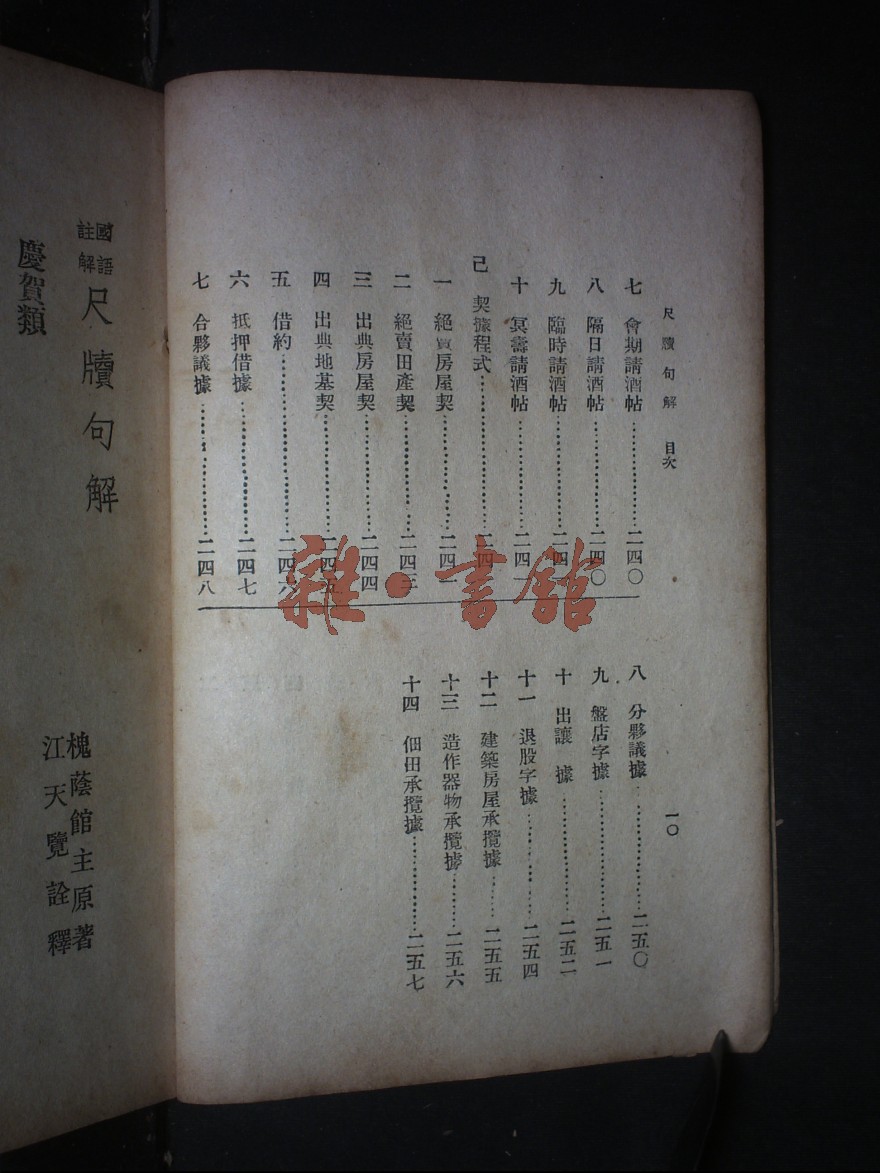 尺牘句解　目次
一〇
七　會期請酒帖……二四〇
八　隔日請酒帖……二四〇
九　臨時請酒帖……二四〇
十　冥壽請酒帖……二四一
己　契據程式……二四一
一　絕賣房屋契……二四一
二　絕賣田產契……二四三
三　出典房屋契……二四四
四　出典地基契……二四五
五　借約……二四六
六　抵押借據……二四七
七　合夥議據……二四八
八　分夥議據……二五〇
九　盤店字據……二五一
十　出讓　據……二五二
十一　退股字據……二五四
十二　建築房屋承攬據……二五五
十三　造作器物承攬據……二五六
十四　佃田承攬據……二五七
國語註解　尺牘句解
槐蔭館主原著
江天覽詮釋
慶賀類
雜·書館